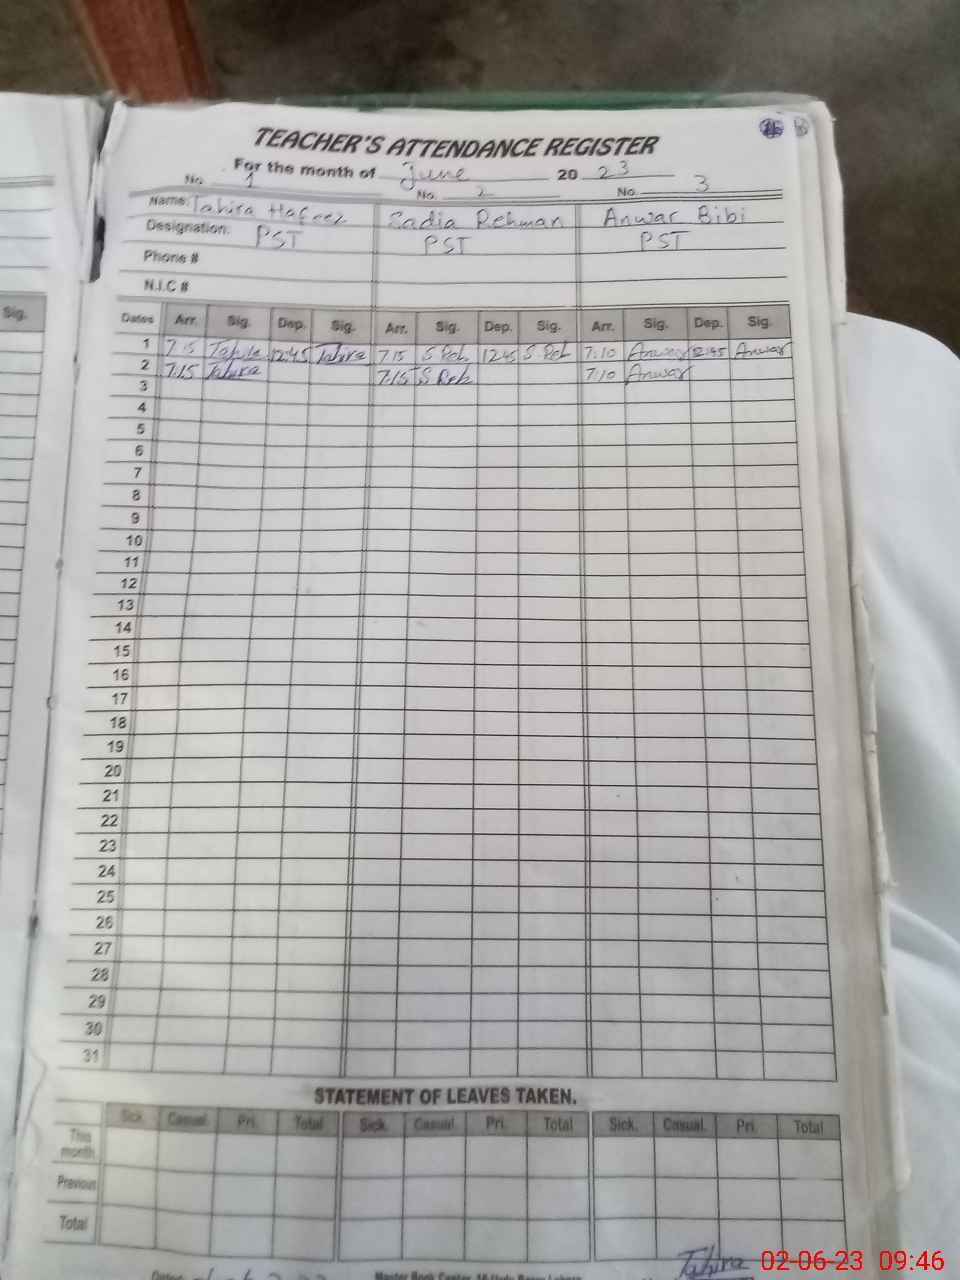 TEACHER'S ATTENDANCE REGISTER
For the month of June 20 23
No. 1 No. 2 No. 3
Name: Tahira Hafeez Sadia Rehman Anwar Bibi
Designation: PST PST PST
Phone #
N.I.C #
Sig.
Dates Arr. Sig. Dep. Sig. Arr. Sig. Dep. Sig. Arr. Sig. Dep. Sig.
1 7 15 Tahira 12:45 Tahira 7 15 S Reh 1245 S Reh 7:10 Anwar 12:45 Anwar
2 7:15 Tahira 7:15 S Reh 7:10 Anwar
3
4
5
6
7
8
9
10
11
12
13
14
15
16
17
18
19
20
21
22
23
24
25
26
27
28
29
30
31
STATEMENT OF LEAVES TAKEN.
Sick. Casual. Pri. Total Sick. Casual. Pri. Total Sick. Casual. Pri. Total
This
month
Previous
Total
Tahira
02-06-23 09:46